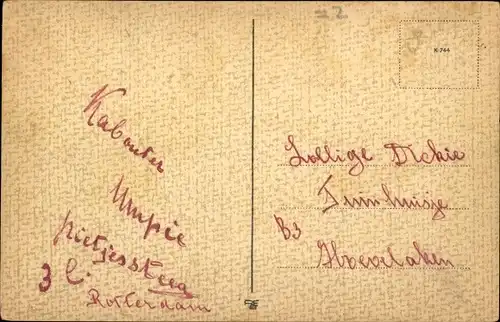 =2
K-744
Kabouter
Umpie
Pietjessteeg
3 E.
Rotterdam
Lollige Dickie
Tuin huisje
B3
Hoevelaken